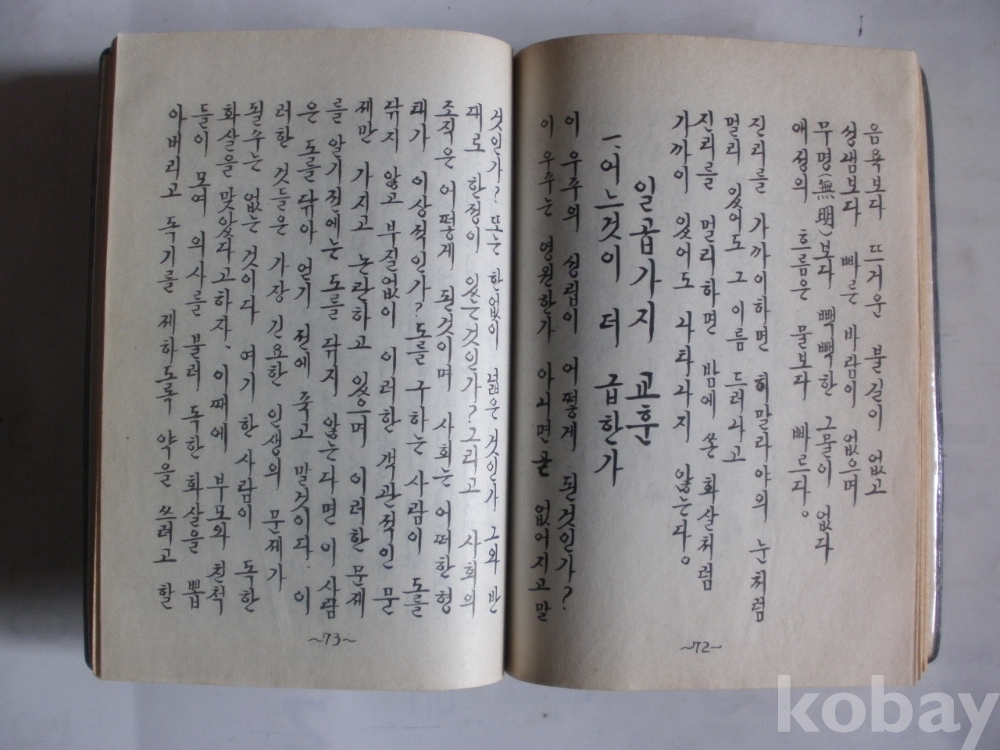 음욕보다 뜨거운 불길이 없고
성냄보다 빠른 바람이 없으며
무명(無明)보다 빽빽한 그물이 없다
애정의 흐름은 물보다 빠르다。
진리를 가까이하면 히말라야의 눈처럼
멀리 있어도 그 이름 드러나고
진리를 멀리하면 밤에 쏜 화살처럼
가까이 있어도 나타나지 않는다。
일곱가지 교훈
一. 어느것이 더 급한가
이 우주의 성립이 어떻게 된것인가?
이 우주는 영원한가 아니면곧 없어지고말
~72~
것인가? 또는 한없이 넓은 것인가 그와 반
대로 한정이 있는것인가? 그리고 사회의
조직은 어떻게 된것이며 사회는 어떠한 형
태가 이상적인가? 도를 구하는 사람이 도를
닦지 않고 부질없이 이러한 객관적인 문
제만 가지고 논란하고 있으며 이러한 문제
를 알기전에는 도를 닦지 않는다면 이 사람
은 도를 닦아 얻기 전에 죽고 말것이다. 이
러한 것들은 가장 긴요한 인생의 문제가
될수는 없는 것이다 여기 한사람이 독한
화살을 맞았다고하자. 이때에 부모와 친척
들이 모여 의사를 불러 독한 화살을 뽑
아버리고 독기를 제하도록 약을 쓰려고 할
~73~
kobay